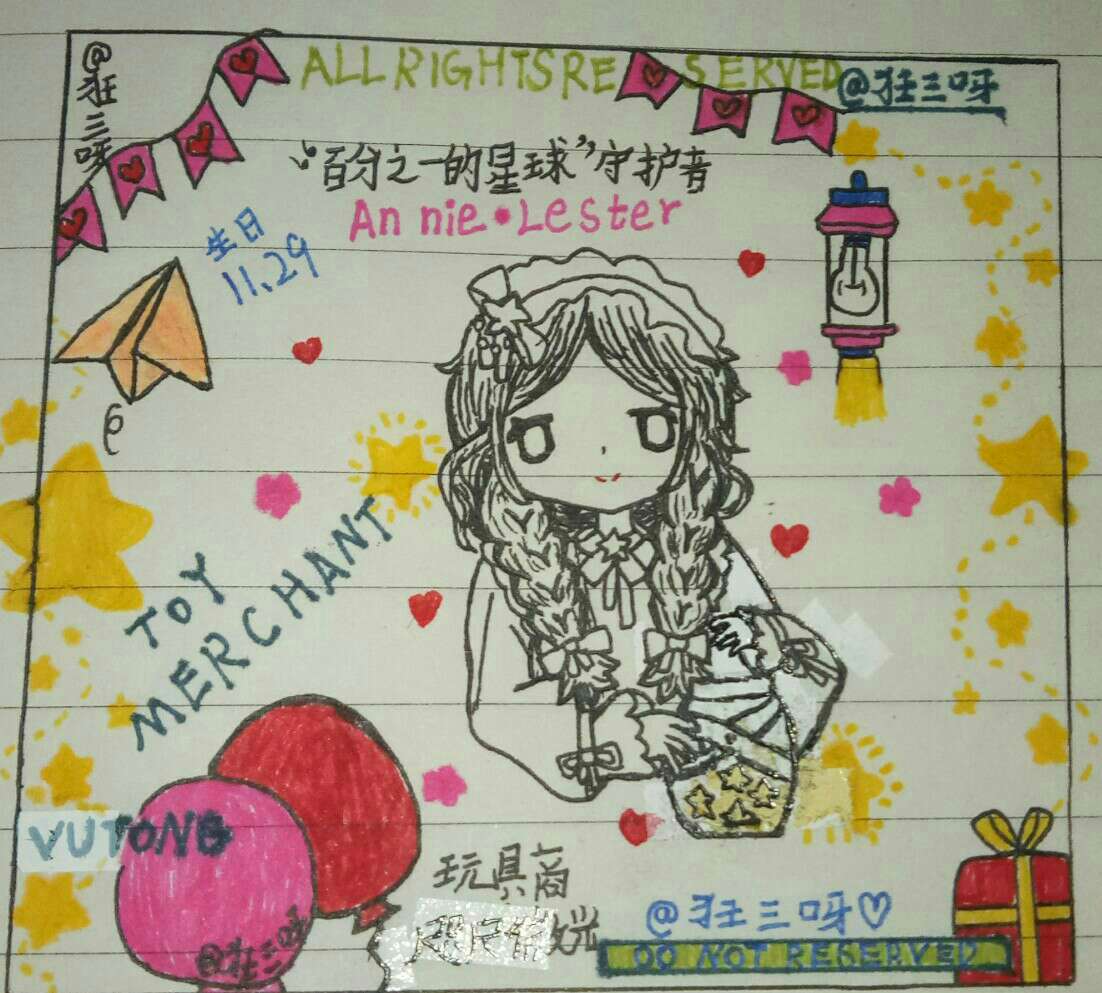 @狂三呀
ALL RIGHTS RESERVED
@狂三呀
“百分之一的星球”守护者
Annie•Lester
生日
11.29
6
TOY
MERCHANT
VUTONG
玩具商
微光
@狂三呀♡
@狂三呀
DO NOT RESERVED